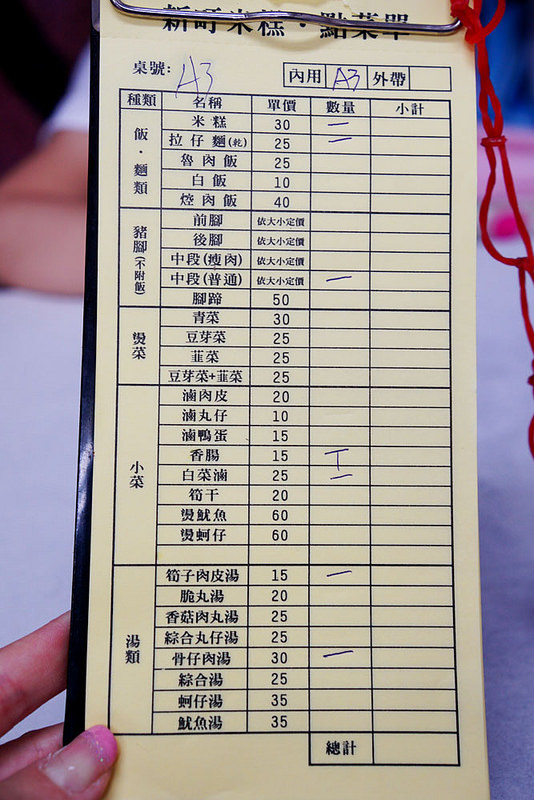 新町米糕・點菜單
桌號: A3 內用 A3 外帶
種類 名稱 單價 數量 小計
飯・麵類
米糕 30 二
拉仔麵(乾) 25 二
魯肉飯 25
白飯 10
焢肉飯 40
豬腳(不附飯)
前腳 依大小定價
後腳 依大小定價
中段(瘦肉) 依大小定價
中段(普通) 依大小定價 一
腳蹄 50
燙菜
青菜 30
豆芽菜 25
韭菜 25
豆芽菜+韭菜 25
小菜
滷肉皮 20
滷丸仔 10
滷鴨蛋 15
香腸 15 T
白菜滷 25 二
筍干 20
燙魷魚 60
燙蚵仔 60
湯類
筍子肉皮湯 15 一
脆丸湯 20
香菇肉丸湯 25
綜合丸仔湯 25
骨仔肉湯 30 一
綜合湯 25
蚵仔湯 35
魷魚湯 35
總計